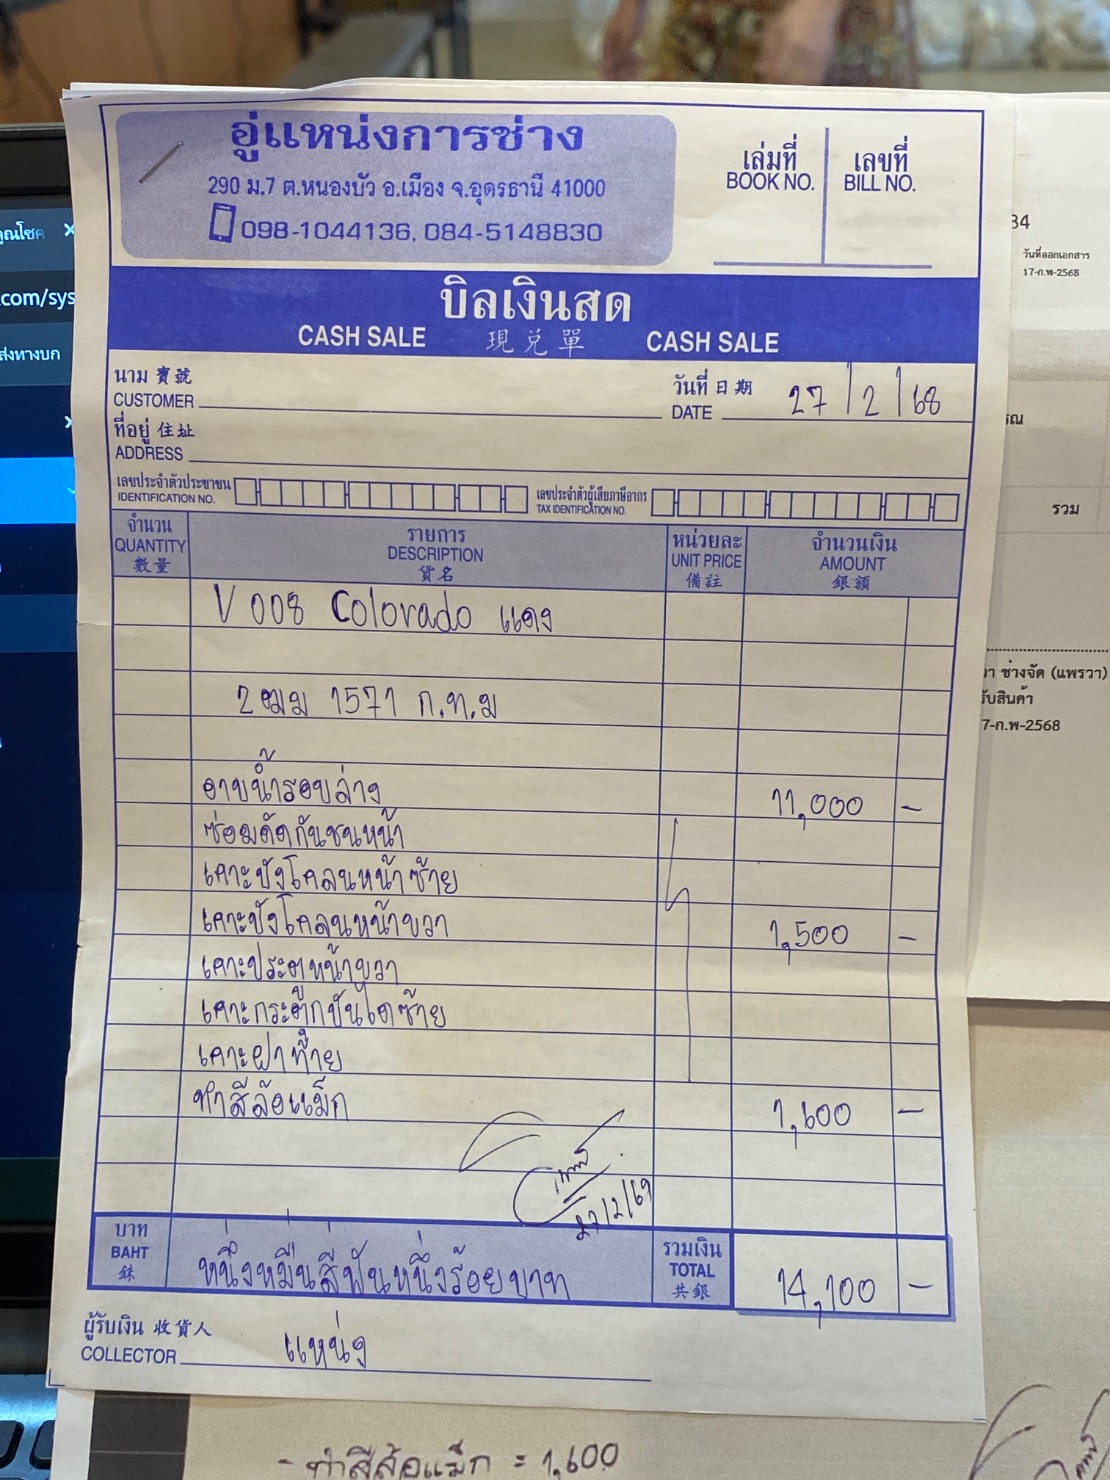 อู่แหน่งการช่าง
290 ม.7 ต.หนองบัว อ.เมือง จ.อุดรธานี 41000
098-1044136, 084-5148830
เล่มที่
BOOK NO.
เลขที่
BILL NO.
บิลเงินสด
CASH SALE 現兑單 CASH SALE
นาม 寶號
CUSTOMER
วันที่ 日期
DATE 27/2/68
ที่อยู่ 住址
ADDRESS
เลขประจำตัวประชาชน
IDENTIFICATION NO.
เลขประจำตัวผู้เสียภาษีอากร
TAX IDENTIFICATION NO.
จำนวน
QUANTITY
數量
รายการ
DESCRIPTION
貨名
หน่วยละ
UNIT PRICE
備註
จำนวนเงิน
AMOUNT
銀額
V 008 Colorado แดง
2ฒม 1571 ก.ท.ม
อาบน้ำรอบล่าง 11,000 -
ซ่อมดัดกันชนหน้า
เคาะบังโคลนหน้าซ้าย
เคาะบังโคลนหน้าขวา 1,500 -
เคาะประตูหน้าขวา
เคาะกระตุ๊กบันไดซ้าย
เคาะฝาท้าย
ทำสีล้อแม็ก 1,600 -
27/2/69
บาท
BAHT
銖
หนึ่งหมื่นสี่พันหนึ่งร้อยบาท
รวมเงิน
TOTAL
共銀
14,100 -
ผู้รับเงิน 收貨人
COLLECTOR แหน่ง
- ทำสีล้อแม็ก = 1,600
คุณโชค
.com/sys
ส่งทางบก
34
วันที่ออกเอกสาร
17-ก.พ-2568
รวม
ช่างจัด (แพรวา)
รับสินค้า
7-ก.พ-2568